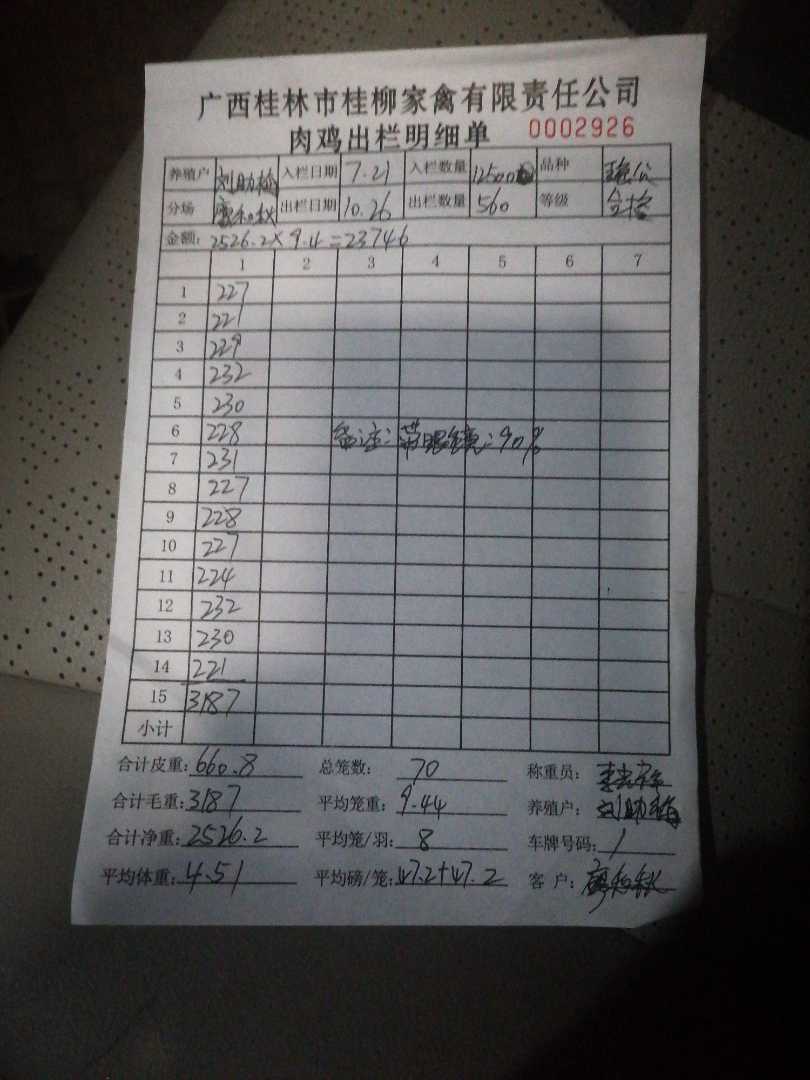 广西桂林市桂柳家禽有限责任公司
肉鸡出栏明细单 0002926
养殖户 刘助梅 入栏日期 7.21 入栏数量 12500 品种
分场 出栏日期 10.26 出栏数量 560 等级 合格
金额: 2526.2×9.4=23746
1 2 3 4 5 6 7
1 227
2 221
3 229
4 232
5 230
6 228 备注:带眼镜:90%
7 231
8 227
9 228
10 227
11 224
12 232
13 230
14 221
15 3187
小计
合计皮重: 660.8 总笼数: 70 称重员:
合计毛重: 3187 平均笼重: 9.44 养殖户: 刘助梅
合计净重: 2526.2 平均笼/羽: 8 车牌号码: 1
平均体重: 4.51 平均磅/笼: 47.2+47.2 客户: